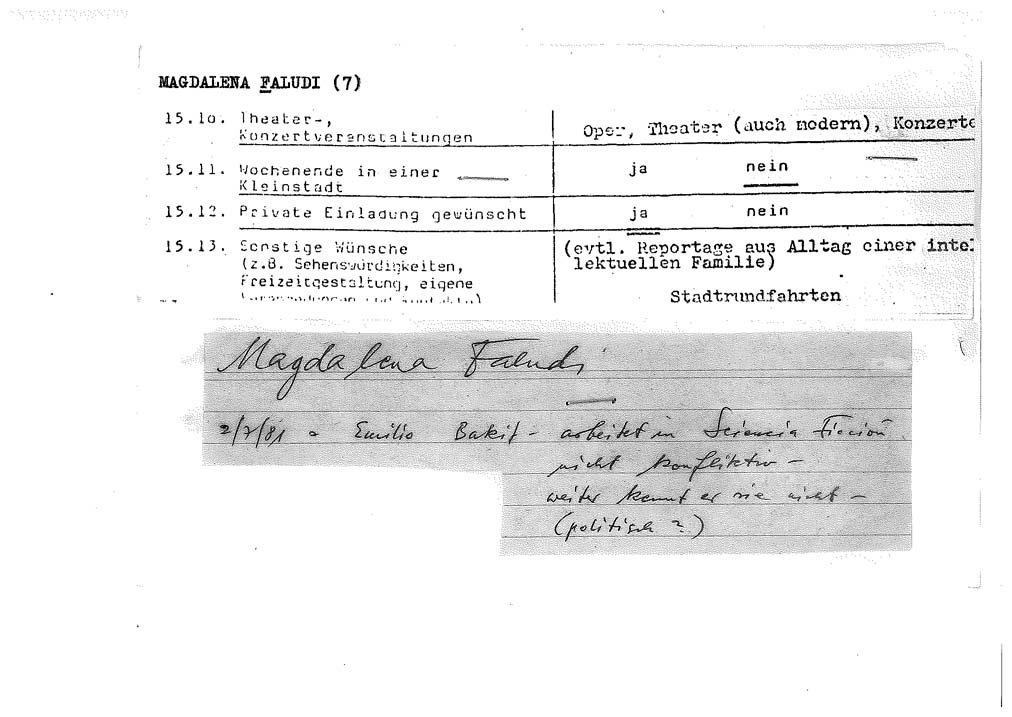 MAGDALENA FALUDI (7)
15.10. Theater-,
Konzertveranstaltungen
Oper, Theater (auch modern), Konzerte
15.11. Wochenende in einer
Kleinstadt
ja nein
15.12. Private Einladung gewünscht
ja nein
15.13. Sonstige Wünsche
(z.B. Sehenswürdigkeiten,
Freizeitgestaltung, eigene
(evtl. Reportage aus Alltag einer intel
lektuellen Familie)
Stadtrundfahrten
Magdalena Faludi
2/7/81 Emilio - arbeitet in Sciencia Ficción
nicht konfliktiv -
weiter kennt er sie nicht -
(politisch ?)